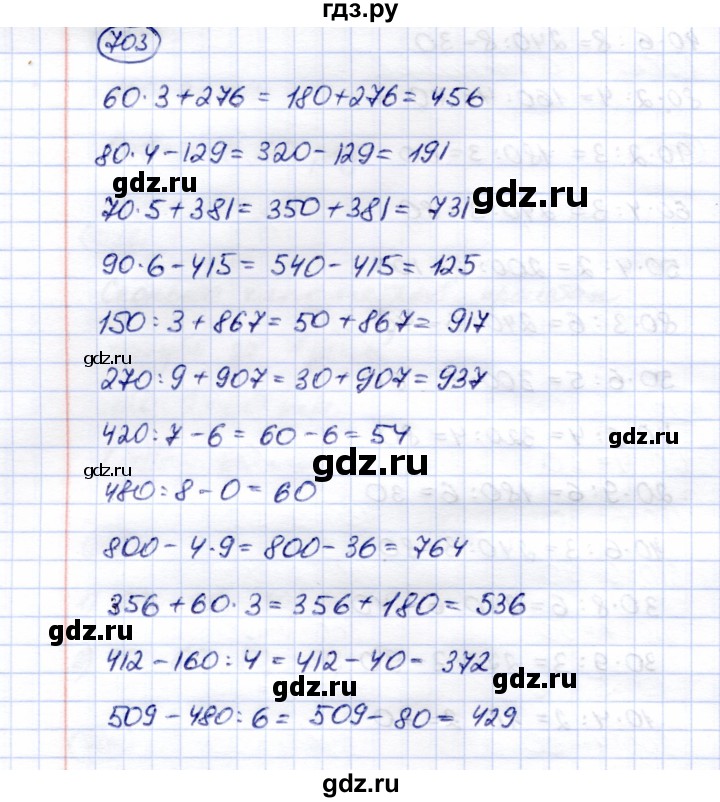 гдз.ру
703
60·3+276 = 180+276 = 456
80·4-129 = 320-129 = 191
gdz.ru
gdz.ru
70·5+381 = 350+381 = 731
90·6-415 = 540-415 = 125
150:3+867 = 50+867 = 917
gdz.ru
270:9+907 = 30+907 = 937
420:7-6 = 60-6 = 54
gdz.ru
gdz.ru
gdz.ru
480:8-0 = 60
800-4·9 = 800-36 = 764
356+60·3 = 356+180 = 536
gdz.ru
412-160:4 = 412-40- 372
gdz.ru
gdz.ru
509-480:6 = 509-80 = 429
gdz.ru